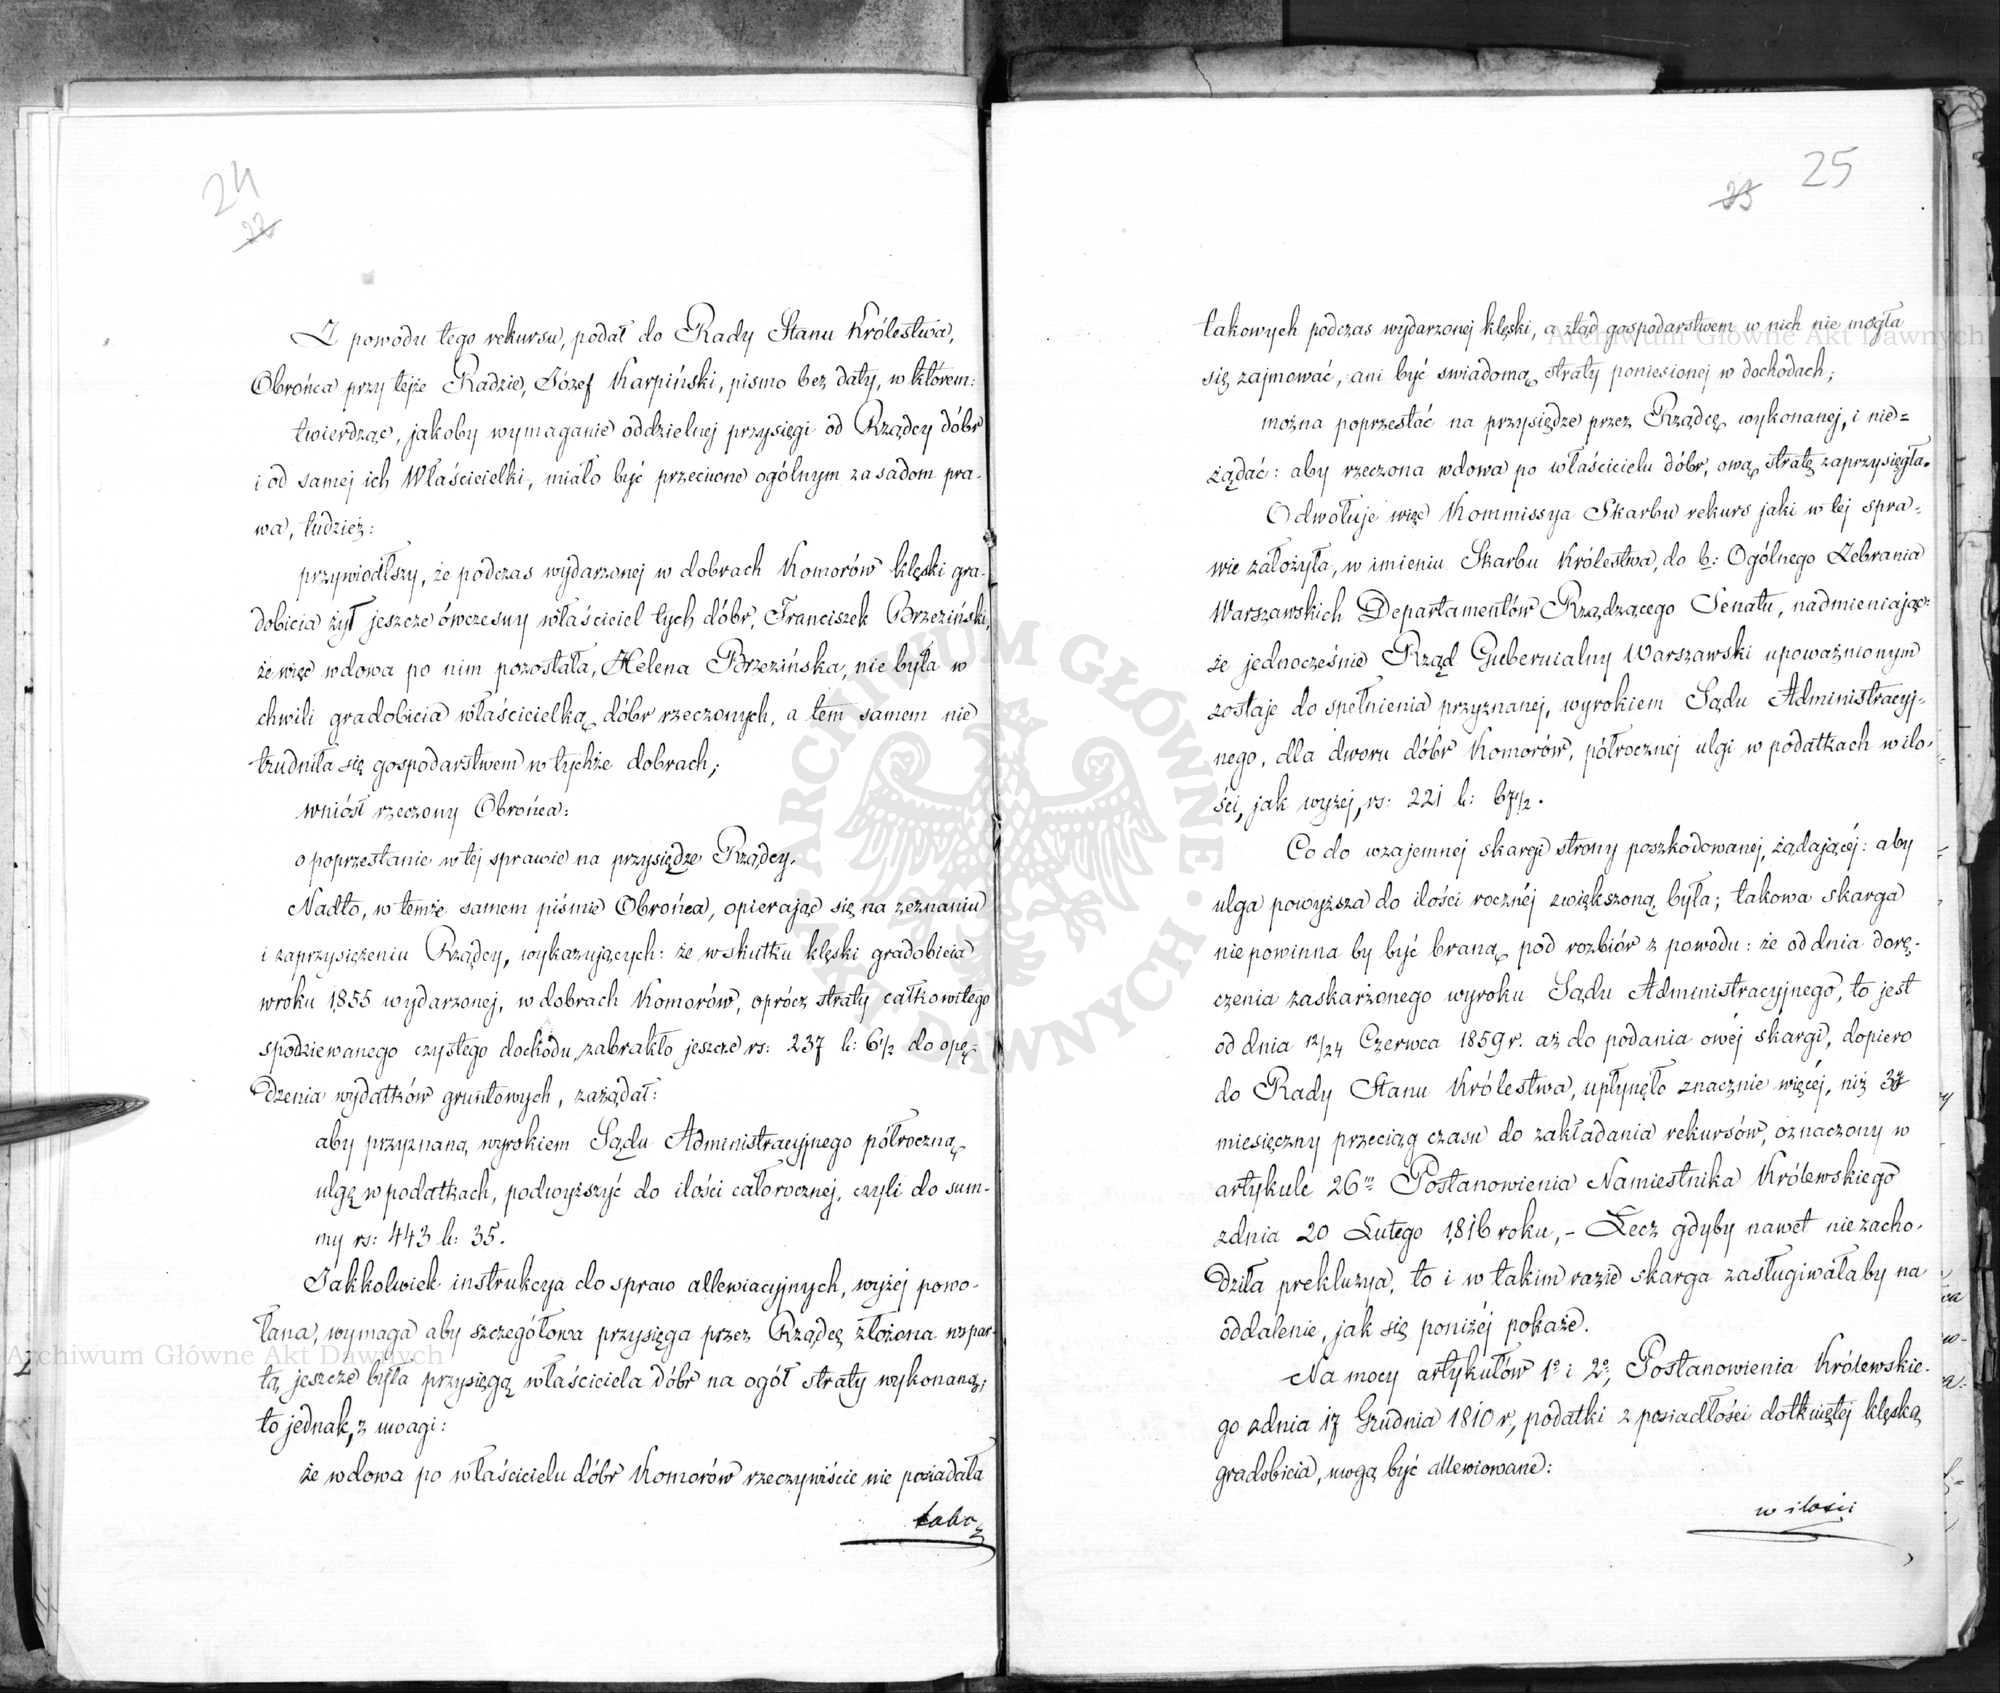 24
22
Z powodu tego rekursu, podał do Rady Stanu Królestwa,
Obrońca przy tejże Radzie, Józef Karpiński, pismo bez daty, w którem:
twierdząc, jakoby wymaganie oddzielnej przysięgi od Rządcy dóbr
i od samej ich Właścicielki, miało być przeciwne ogólnym zasadom pra-
wa, tudzież:
przywiódłszy, że podczas wydarzonej w dobrach Komorów klęski gra-
dobicia żył jeszcze ówczesny właściciel tych dóbr, Franciszek Brzeziński,
że więc wdowa po nim pozostała, Helena Brzezińska, nie była w
chwili gradobicia właścicielką dóbr rzeczonych, a tem samem nie
trudniła się gospodarstwem w tychże dobrach;
wniósł rzeczony Obrońca:
o poprzestanie w tej sprawie na przysiędze Rządcy.
Nadto, w temże samem piśmie Obrońca, opierając się na zeznaniu
i zaprzysiężeniu Rządcy, wykazujących: że wskutku klęski gradobicia
w roku 1855 wydarzonej, w dobrach Komorów, oprócz straty całkowitego
spodziewanego czystego dochodu, zabrakło jeszcze rs: 237 k: 6½ do opę-
dzenia wydatków gruntowych, zażądał:
aby przyznaną wyrokiem Sądu Administracyjnego półroczną
ulgę w podatkach, podwyższyć do ilości całorocznej, czyli do sum-
my rs: 443 k: 35.
Jakkolwiek instrukcya do spraw allewiacyjnych, wyżej powo-
łana, wymaga aby szczegółowa przysięga przez Rządcę złożona wspar-
tą jeszcze była przysięgą właściciela dóbr na ogół straty wykonaną;
to jednak, z uwagi:
że wdowa po właścicielu dóbr Komorów rzeczywiście nie posiadała
tako
25
23
takowych podczas wydarzonej klęski, a ztąd gospodarstwem w nich nie mogła
się zajmować, ani być swiadomą straty poniesionej w dochodach;
można poprzestać na przysiędze przez Rządcę wykonanej, i nie=
żądać: aby rzeczona wdowa po właścicielu dóbr, ową stratę zaprzysięgła.
Odwołuje więc Kommissya Skarbu rekurs jaki w tej spra-
wie założyła, w imieniu Skarbu Królestwa, do b: Ogólnego Zebrania
Warszawskich Departamentów Rządzącego Senatu, nadmieniając:
że jednocześnie Rząd Gubernialny Warszawski upoważnionym
zostaje do spełnienia przyznanej, wyrokiem Sądu Administracyj-
nego, dla dworu dóbr Komorów, półrocznej ulgi w podatkach w ilo-
ści, jak wyżej, rs: 221 k: 67½.
Co do wzajemnej skargi strony poszkodowanej, żądającéj: aby
ulga powyższa do ilości rocznéj zwiększoną była; takowa skarga
nie powinna by być braną pod rozbiór z powodu: że od dnia dorę-
czenia zaskarżonego wyroku Sądu Administracyjnego, to jest
od dnia 12/24 Czerwca 1859 r. aż do podania owéj skargi, dopiero
do Rady Stanu Królestwa, upłynęło znacznie więcéj, niż 3y
miesięczny przeciąg czasu do zakładania rekursów, oznaczony w
artykule 26m Postanowienia Namiestnika Królewskiego
z dnia 20 Lutego 1816 roku, – Lecz gdyby nawet nie zacho-
dziła prekluzya, to i w takim razie skarga zasługiwałaby na
oddalenie, jak się poniżéj pokaże.
Na mocy artykułów 1o i 2o, Postanowienia Królewskie-
go z dnia 17 Grudnia 1810 r, podatki z posiadłości dotkniętej klęską
gradobicia, mogą być allewiowane:
w ilości
ARCHIWUM GŁÓWNE AKT DAWNYCH
Archiwum Główne Akt Dawnych
Archiwum Główne Akt Dawnych